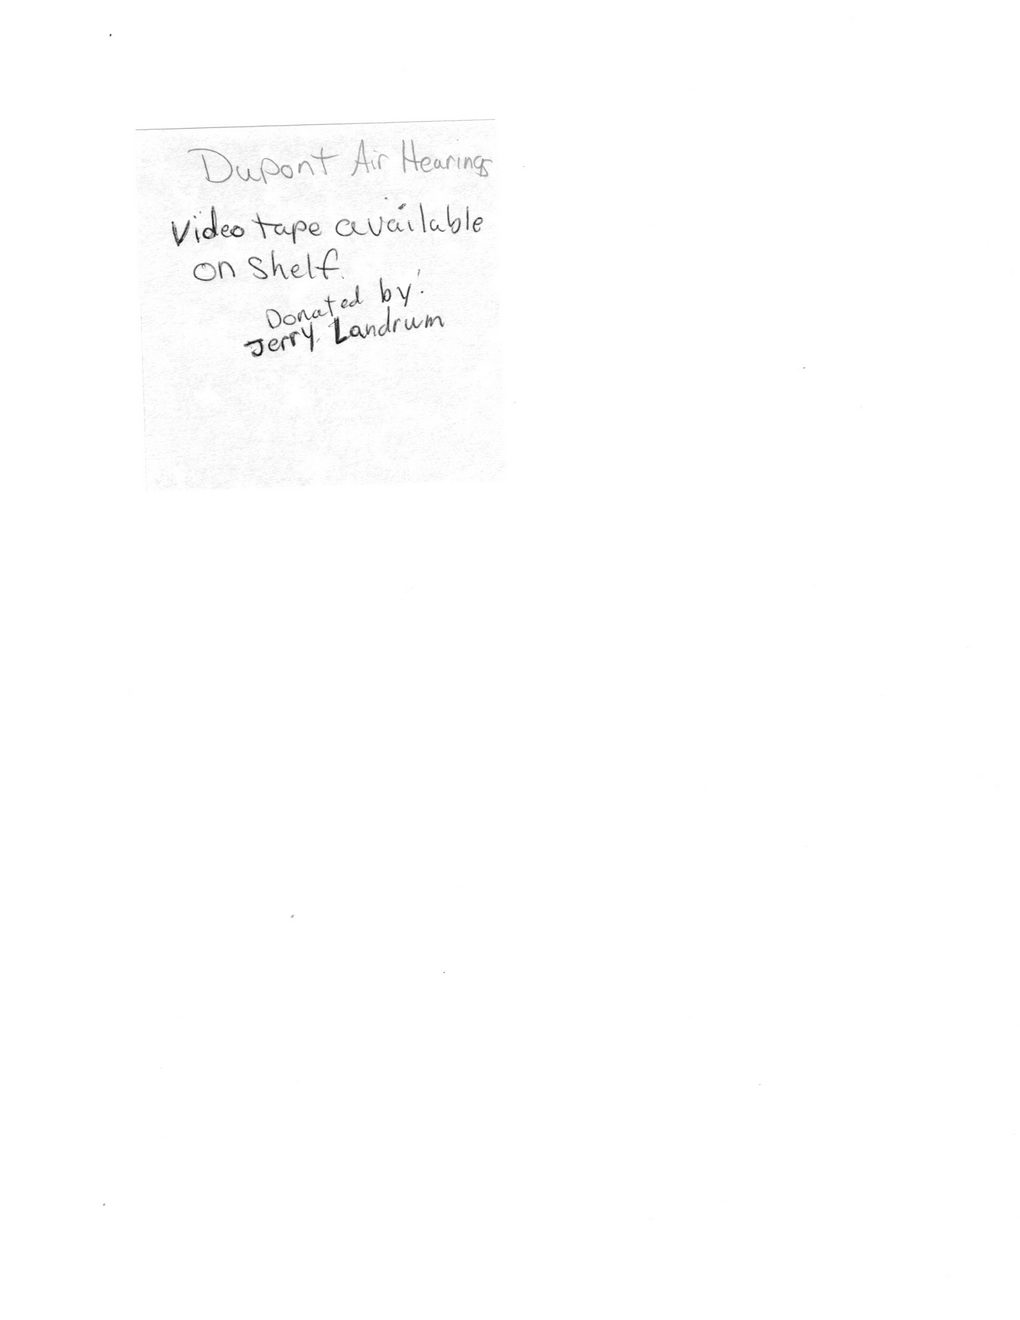 Dupont Air Hearings
Video tape available
on Shelf.
Donated by:
Jerry Landrum